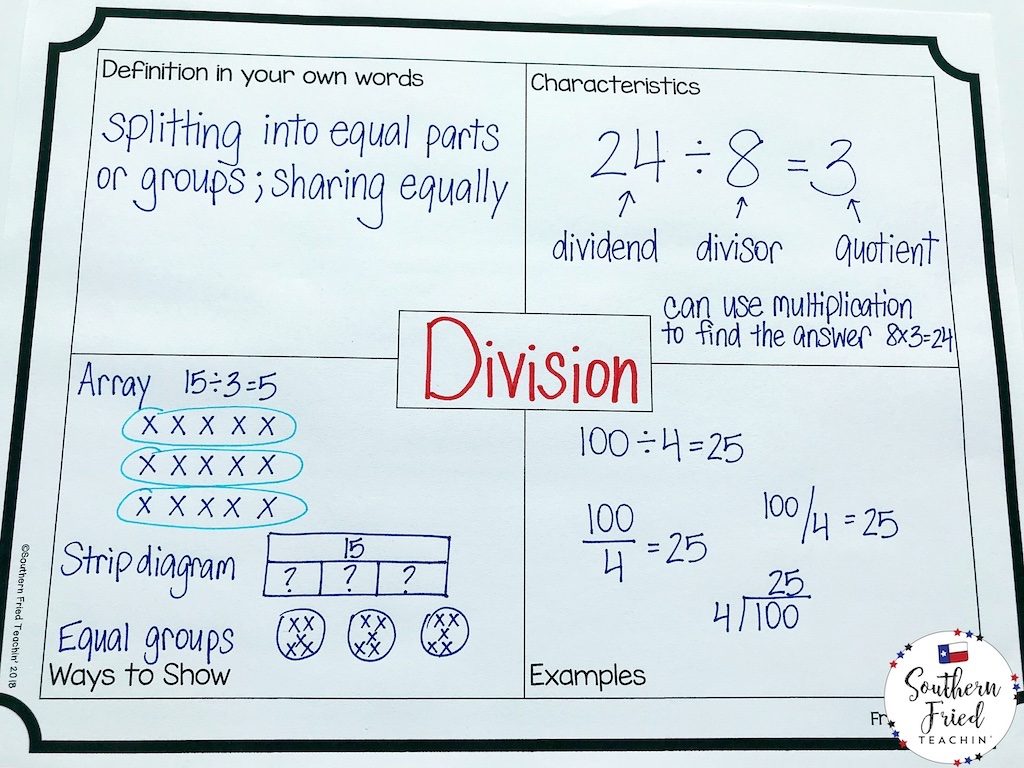 Definition in your own words
splitting into equal parts
or groups; sharing equally
Characteristics
24 ÷ 8 = 3
dividend divisor quotient
can use multiplication
to find the answer 8x3=24
Division
Array 15÷3=5
X X X X X
X X X X X
X X X X X
Strip diagram
15
? ? ?
Equal groups
X X X X X X
X X X
X X X X X X
Ways to Show
100 ÷ 4 = 25
100
4
= 25
100/4 = 25
25
4 100
Examples
©Southern Fried Teachin' 2018
Fr
Southern
Fried
TEACHIN'